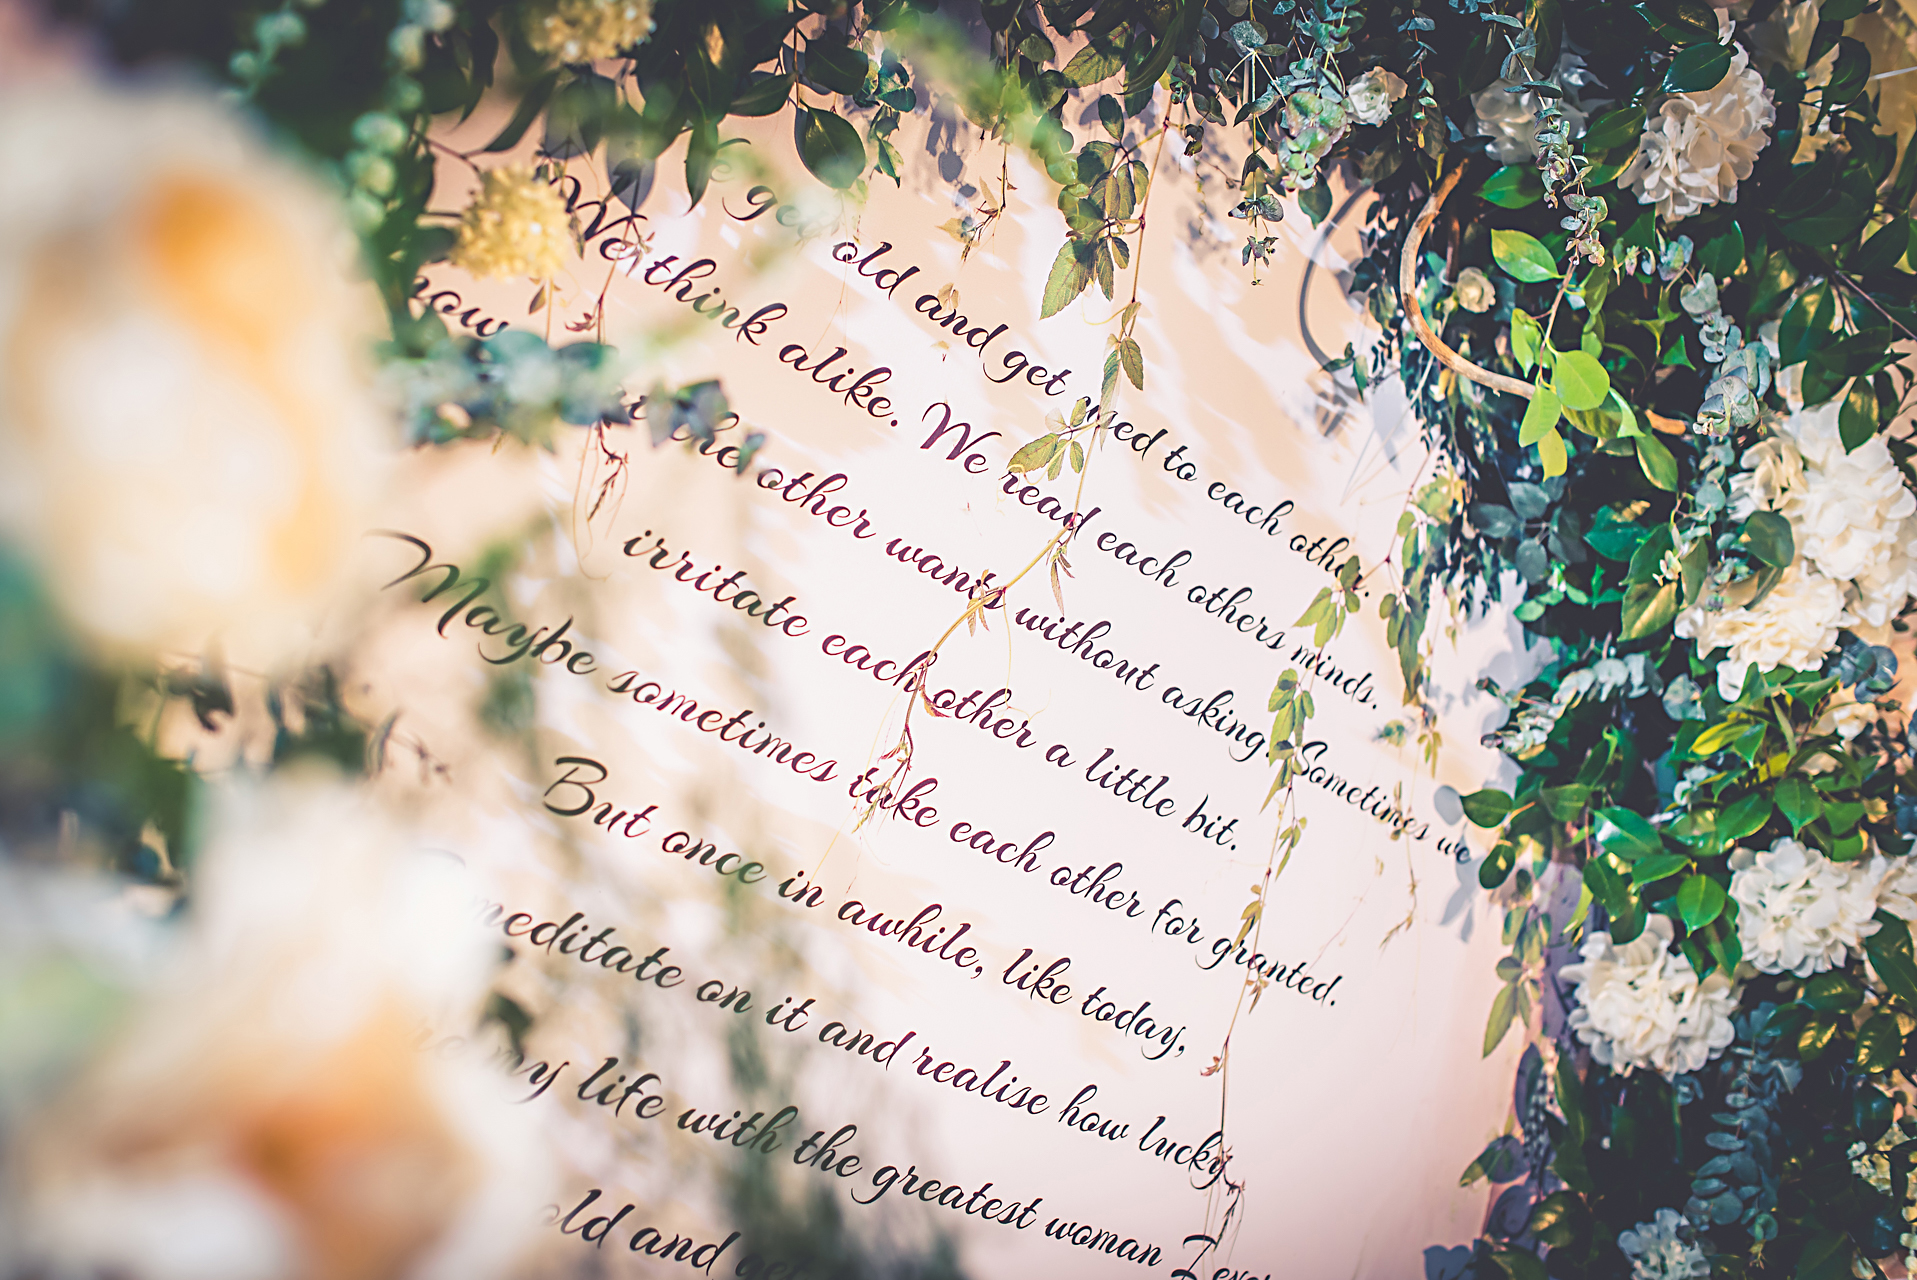 We get old and get used to each other.
We think alike. We read each others minds.
know what the other wants without asking. Sometimes we
irritate each other a little bit.
Maybe sometimes take each other for granted.
But once in awhile, like today,
meditate on it and realise how lucky
my life with the greatest woman I ever
old and get